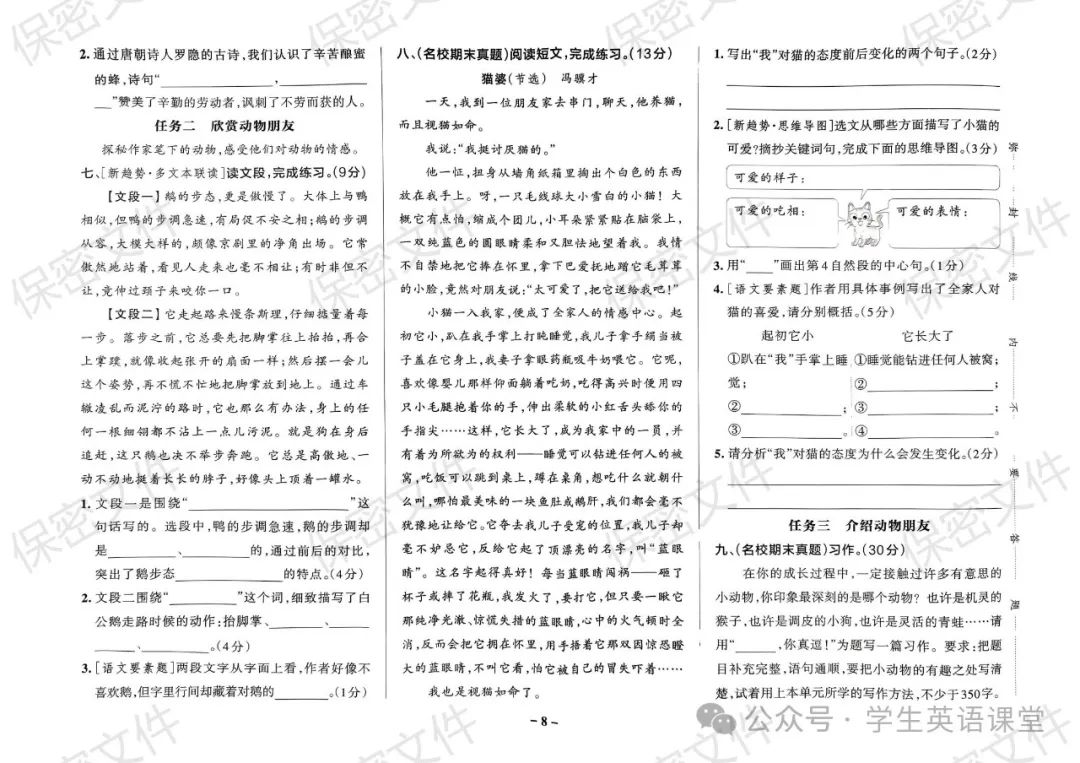 2.通过唐朝诗人罗隐的古诗,我们认识了辛苦酿蜜
的蜂,诗句“____________,____________
__”赞美了辛勤的劳动者,讽刺了不劳而获的人。
任务二 欣赏动物朋友
探秘作家笔下的动物,感受他们对动物的情感。
七、[新趋势·多文本联读]读文段,完成练习。(9分)
【文段一】鹅的步态,更是傲慢了。大体上与鸭
相似,但鸭的步调急速,有局促不安之相;鹅的步调
从容,大模大样的,颇像京剧里的净角出场。它常
傲然地站着,看见人走来也毫不相让;有时非但不
让,竟伸过颈子来咬你一口。
【文段二】它走起路来慢条斯理,仔细掂量着每
一步。落步之前,它总要先把脚掌往上抬抬,再合
上掌蹼,就像收起张开的扇面一样;然后摆一会儿
这个姿势,再不慌不忙地把脚掌放到地上。通过车
辙凌乱而泥泞的路时,它也那么有办法,身上的任
何一根细翎都不沾上一点儿污泥。就是狗在身后
追赶,这只鹅也决不举步奔跑。它总是高傲地、一
动不动地挺着长长的脖子,好像头上顶着一罐水。
1.文段一是围绕“____________”这
句话写的。选段中,鸭的步调急速,鹅的步调却
是________、________的,通过前后的对比,
突出了鹅步态________的特点。(4分)
2.文段二围绕“________”这个词,细致描写了白
公鹅走路时候的动作:抬脚掌、________、
________、________。(4分)
3.[语文要素题]两段文字从字面上看,作者好像不
喜欢鹅,但字里行间却藏着对鹅的________。(1分)
八、(名校期末真题)阅读短文,完成练习。(13分)
猫婆(节选) 冯骥才
一天,我到一位朋友家去串门,聊天,他养猫,
而且视猫如命。
我说:“我挺讨厌猫的。”
他一怔,扭身从墙角纸箱里掏出个白色的东西
放在我手上。呀,一只毛线球大小雪白的小猫!大
概它有点怕,缩成个团儿,小耳朵紧紧贴在脑袋上,
一双纯蓝色的圆眼睛柔和又胆怯地望着我。我情
不自禁地把它捧在怀里,拿下巴爱抚地蹭它毛茸茸
的小脸,竟然对朋友说:“太可爱了,把它送给我吧!”
小猫一入我家,便成了全家人的情感中心。起
初它小,趴在我手掌上打盹睡觉,我儿子拿手绢当被
子盖在它身上,我妻子拿眼药瓶吸牛奶喂它。它呢,
喜欢像婴儿那样仰面躺着吃奶,吃得高兴时便用四
只小毛腿抱着你的手,伸出柔软的小红舌头舔你的
手指尖……这样,它长大了,成为我家中的一员,并
有着为所欲为的权利——睡觉可以钻进任何人的被
窝,吃饭可以跳到桌上,蹲在桌角,想吃什么就朝什
么叫,哪怕最美味的一块鱼肚或鹅肝,我们都会毫不
犹豫地让给它。它夺去我儿子受宠的位置,我儿子却
毫不妒忌它,反给它起了顶漂亮的名字,叫“蓝眼
睛”。这名字起得真好!每当蓝眼睛闯祸——砸了
杯子或摔了花瓶,我发火了,要打它,但只要一瞅它
那纯净光澈、惊慌失措的蓝眼睛,心中的火气顿时全
消,反而会把它拥在怀里,用手捂着它那双因惊恐瞪
大的蓝眼睛,不叫它看,怕它被自己的冒失吓着……
我也是视猫如命了。
1.写出“我”对猫的态度前后变化的两个句子。(2分)
2.[新趋势·思维导图]选文从哪些方面描写了小猫的
可爱?摘抄关键词句,完成下面的思维导图。(3分)
可爱的样子:
可爱的吃相:
可爱的表情:
3.用“____”画出第4自然段的中心句。(1分)
4.[语文要素题]作者用具体事例写出了全家人对
猫的喜爱,请分别概括。(5分)
起初它小 它长大了
①趴在“我”手掌上睡 ①睡觉能钻进任何人被窝;
觉; ②____________;
②____________; ③____________;
③____________。 ④____________。
5.请分析“我”对猫的态度为什么会发生变化。(2分)
任务三 介绍动物朋友
九、(名校期末真题)习作。(30分)
在你的成长过程中,一定接触过许多有意思的
小动物,你印象最深刻的是哪个动物?也许是机灵的
猴子,也许是调皮的小狗,也许是灵活的青蛙……请
用“______,你真逗!”为题写一篇习作。要求:把题
目补充完整,语句通顺,要把小动物的有趣之处写清
楚,试着用上本单元所学的写作方法,不少于350字。
密
封
线
内
不
要
答
题
－8－
公众号·学生英语课堂
保密文件